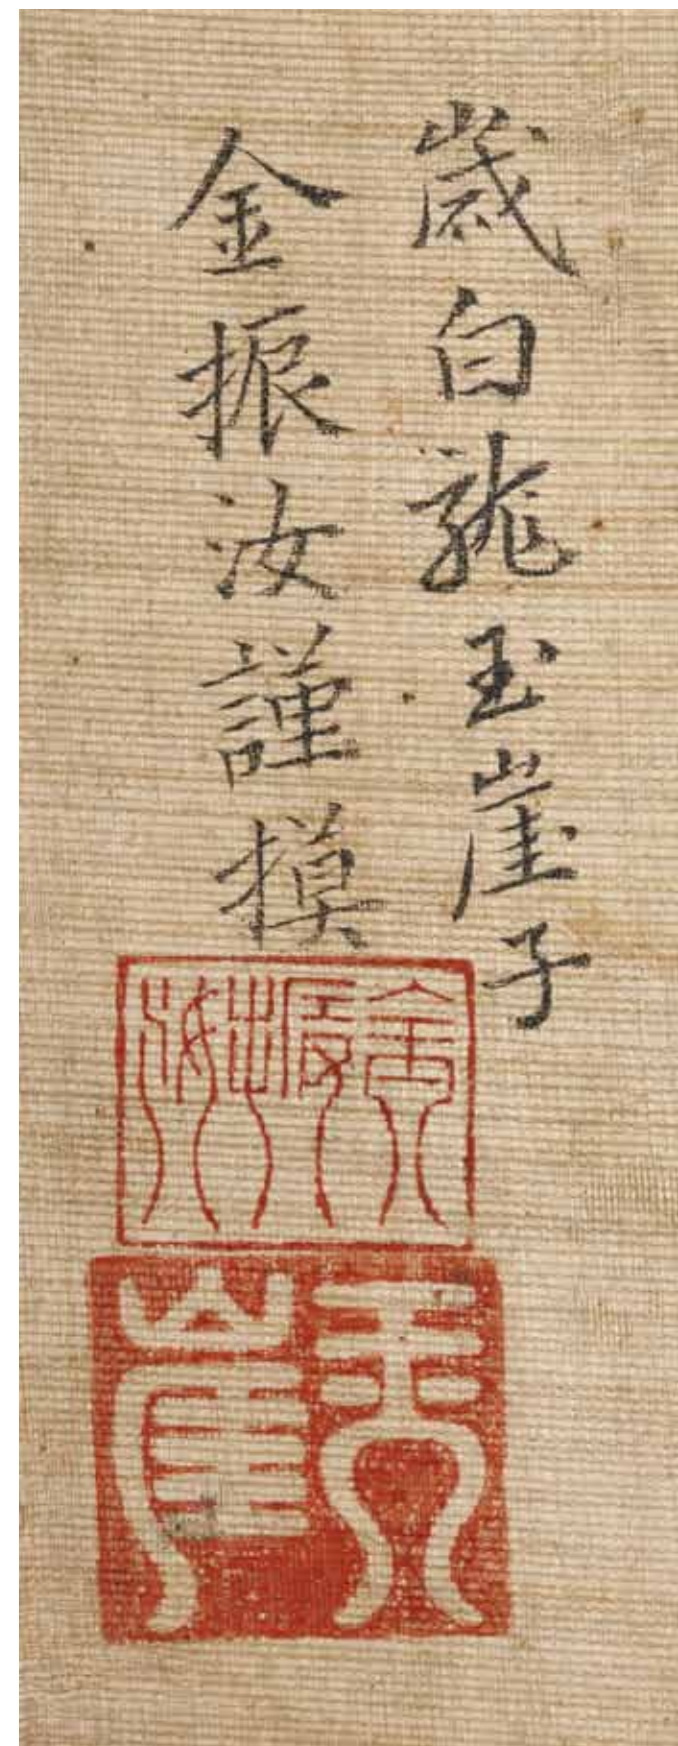 歲白龍玉崖子
金振汝謹摸
金振汝
玉崖